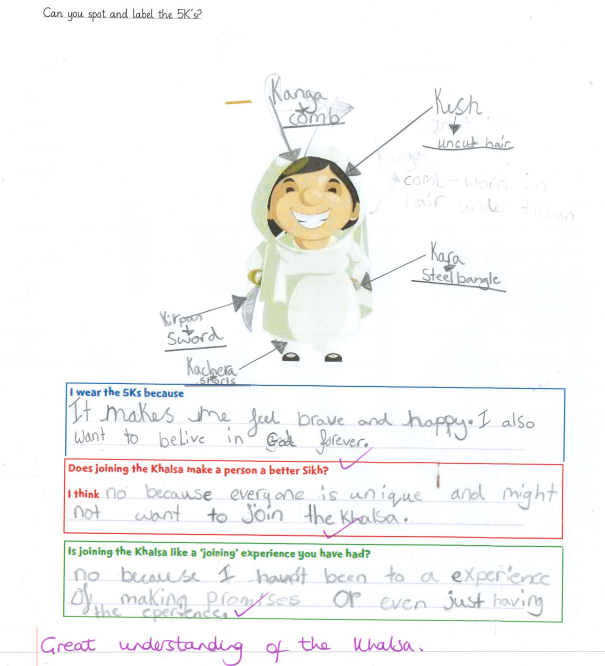 Can you spot and label the 5K's?
Kanga
comb
Kesh
uncut hair
Kanga
comb-worn in
hair
Kara
Steel bangle
Kirpan
Sword
Kachera
shorts
I wear the 5Ks because
It makes me feel brave and happy. I also
want to belive in God forever.
Does joining the Khalsa make a person a better Sikh?
I think no because everyone is unique and might
not want to join the Khalsa.
Is joining the Khalsa like a 'joining' experience you have had?
no because I havn't been to a experience
Of making promises or even just having
the eperience.
Great understanding of the Khalsa.